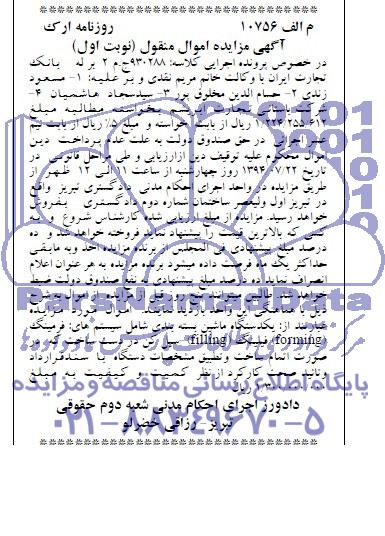 م الف ۱۰۷۵۶ روزنامه ارک
آگهی مزایده اموال منقول (نوبت اول)
در خصوص پرونده اجرایی کلاسه: ۹۳۰۲۸۸ج‌م ۲ بر له بانک
تجارت ایران با وکالت خانم مریم نقدی و بر علیه: ۱- مسعود
زندی ۲- حسام الدین مخلوق پور ۳- سیدسجاد هاشمیان ۴-
شرکت باستانی تجارت بخواسته مطالبه مبلغ
۱/۲۲۴/۲۵۵/۶۱۲ ریال از بابت خواسته و مبلغ ۵٪ ریال از بابت نیم
عشر اجرایی در حق صندوق دولت به علت عدم پرداخت دین
اموال محکوم علیه توقیف دین ازارزیابی و طی مراحل قانونی در
تاریخ ۱۳۹۴/۰۷/۲۲ روز چهارشنبه از ساعت ۱۱ الی ۱۲ ظهر از
طریق مزایده در واحد اجرای احکام مدنی دادگستری تبریز واقع
در تبریز اول ولیعصر ساختمان شماره دوم دادگستری بفروش
خواهد رسید. مزایده از مبلغ ارزیابی شده کارشناس شروع و به
کسی که بالاترین قیمت را پیشنهاد نماید فروخته خواهد شد و ده
درصد مبلغ پیشنهادی فی المجلس از برنده مزایده اخذ و به مابقی
حداکثر یک ماه فرصت داده میشود برنده مزایده به هر عنوان اعلام
انصراف نماید ده درصد مبلغ پیشنهادی به نفع صندوق دولت ضبط
خواهد شد. طالبین میتوانند پنج روز قبل از مزایده از اموال به شرح
ذیل با هماهنگی این واحد بازدید نمایند. اموال مورد مزایده
عبارتند از: یکدستگاه ماشین بسته بندی شامل سیستم های: فرمینگ
(forming) فیلینگ (filling) ساخت که در
صورت اتمام ساخت و تطبیق مشخصات دستگاه با سند قرارداد
و تائید صحت کارکرد از نظر کمیت و کیفیت به مبلغ
ریال
دادورز اجرای احکام مدنی شعبه دوم حقوقی
تبریز - رزاقی خضرلو
پایگاه اطلاع رسانی مناقصه و مزایده
۰۲۱-۸۸۳۴۹۶۷۰-۵